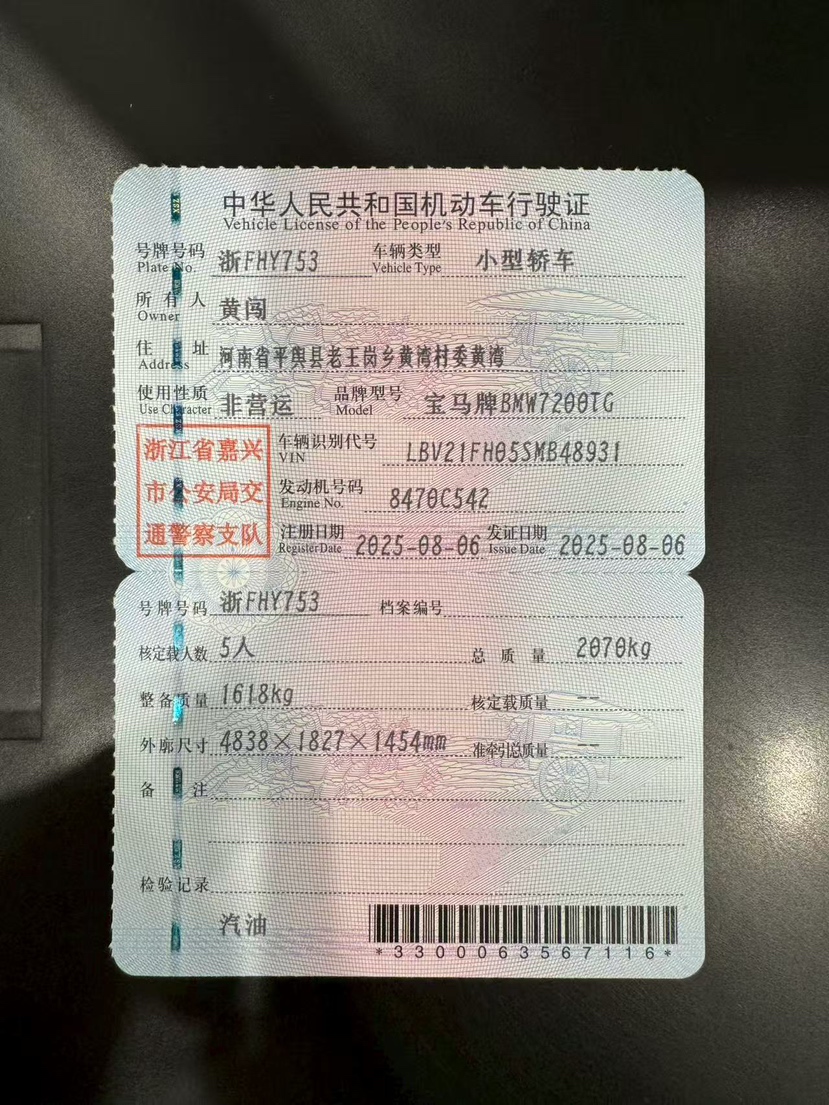 中华人民共和国机动车行驶证
Vehicle License of the People's Republic of China
号牌号码 浙FHY753 车辆类型 小型轿车
Plate No. Vehicle Type
所有人 黄闯
Owner
住址 河南省平舆县老王岗乡黄湾村委黄湾
Address
使用性质 非营运 品牌型号 宝马牌BMW7200TG
Use Character Model
浙江省嘉兴
市公安局交
通警察支队
车辆识别代号 LBV21FH05SMB48931
VIN
发动机号码 8470C542
Engine No.
注册日期 2025-08-06 发证日期 2025-08-06
Register Date Issue Date
号牌号码 浙FHY753 档案编号
核定载人数 5人 总质量 2070kg
整备质量 1618kg 核定载质量 --
外廓尺寸 4838×1827×1454mm 准牵引总质量 --
备注
检验记录
汽油
*3300063567116*